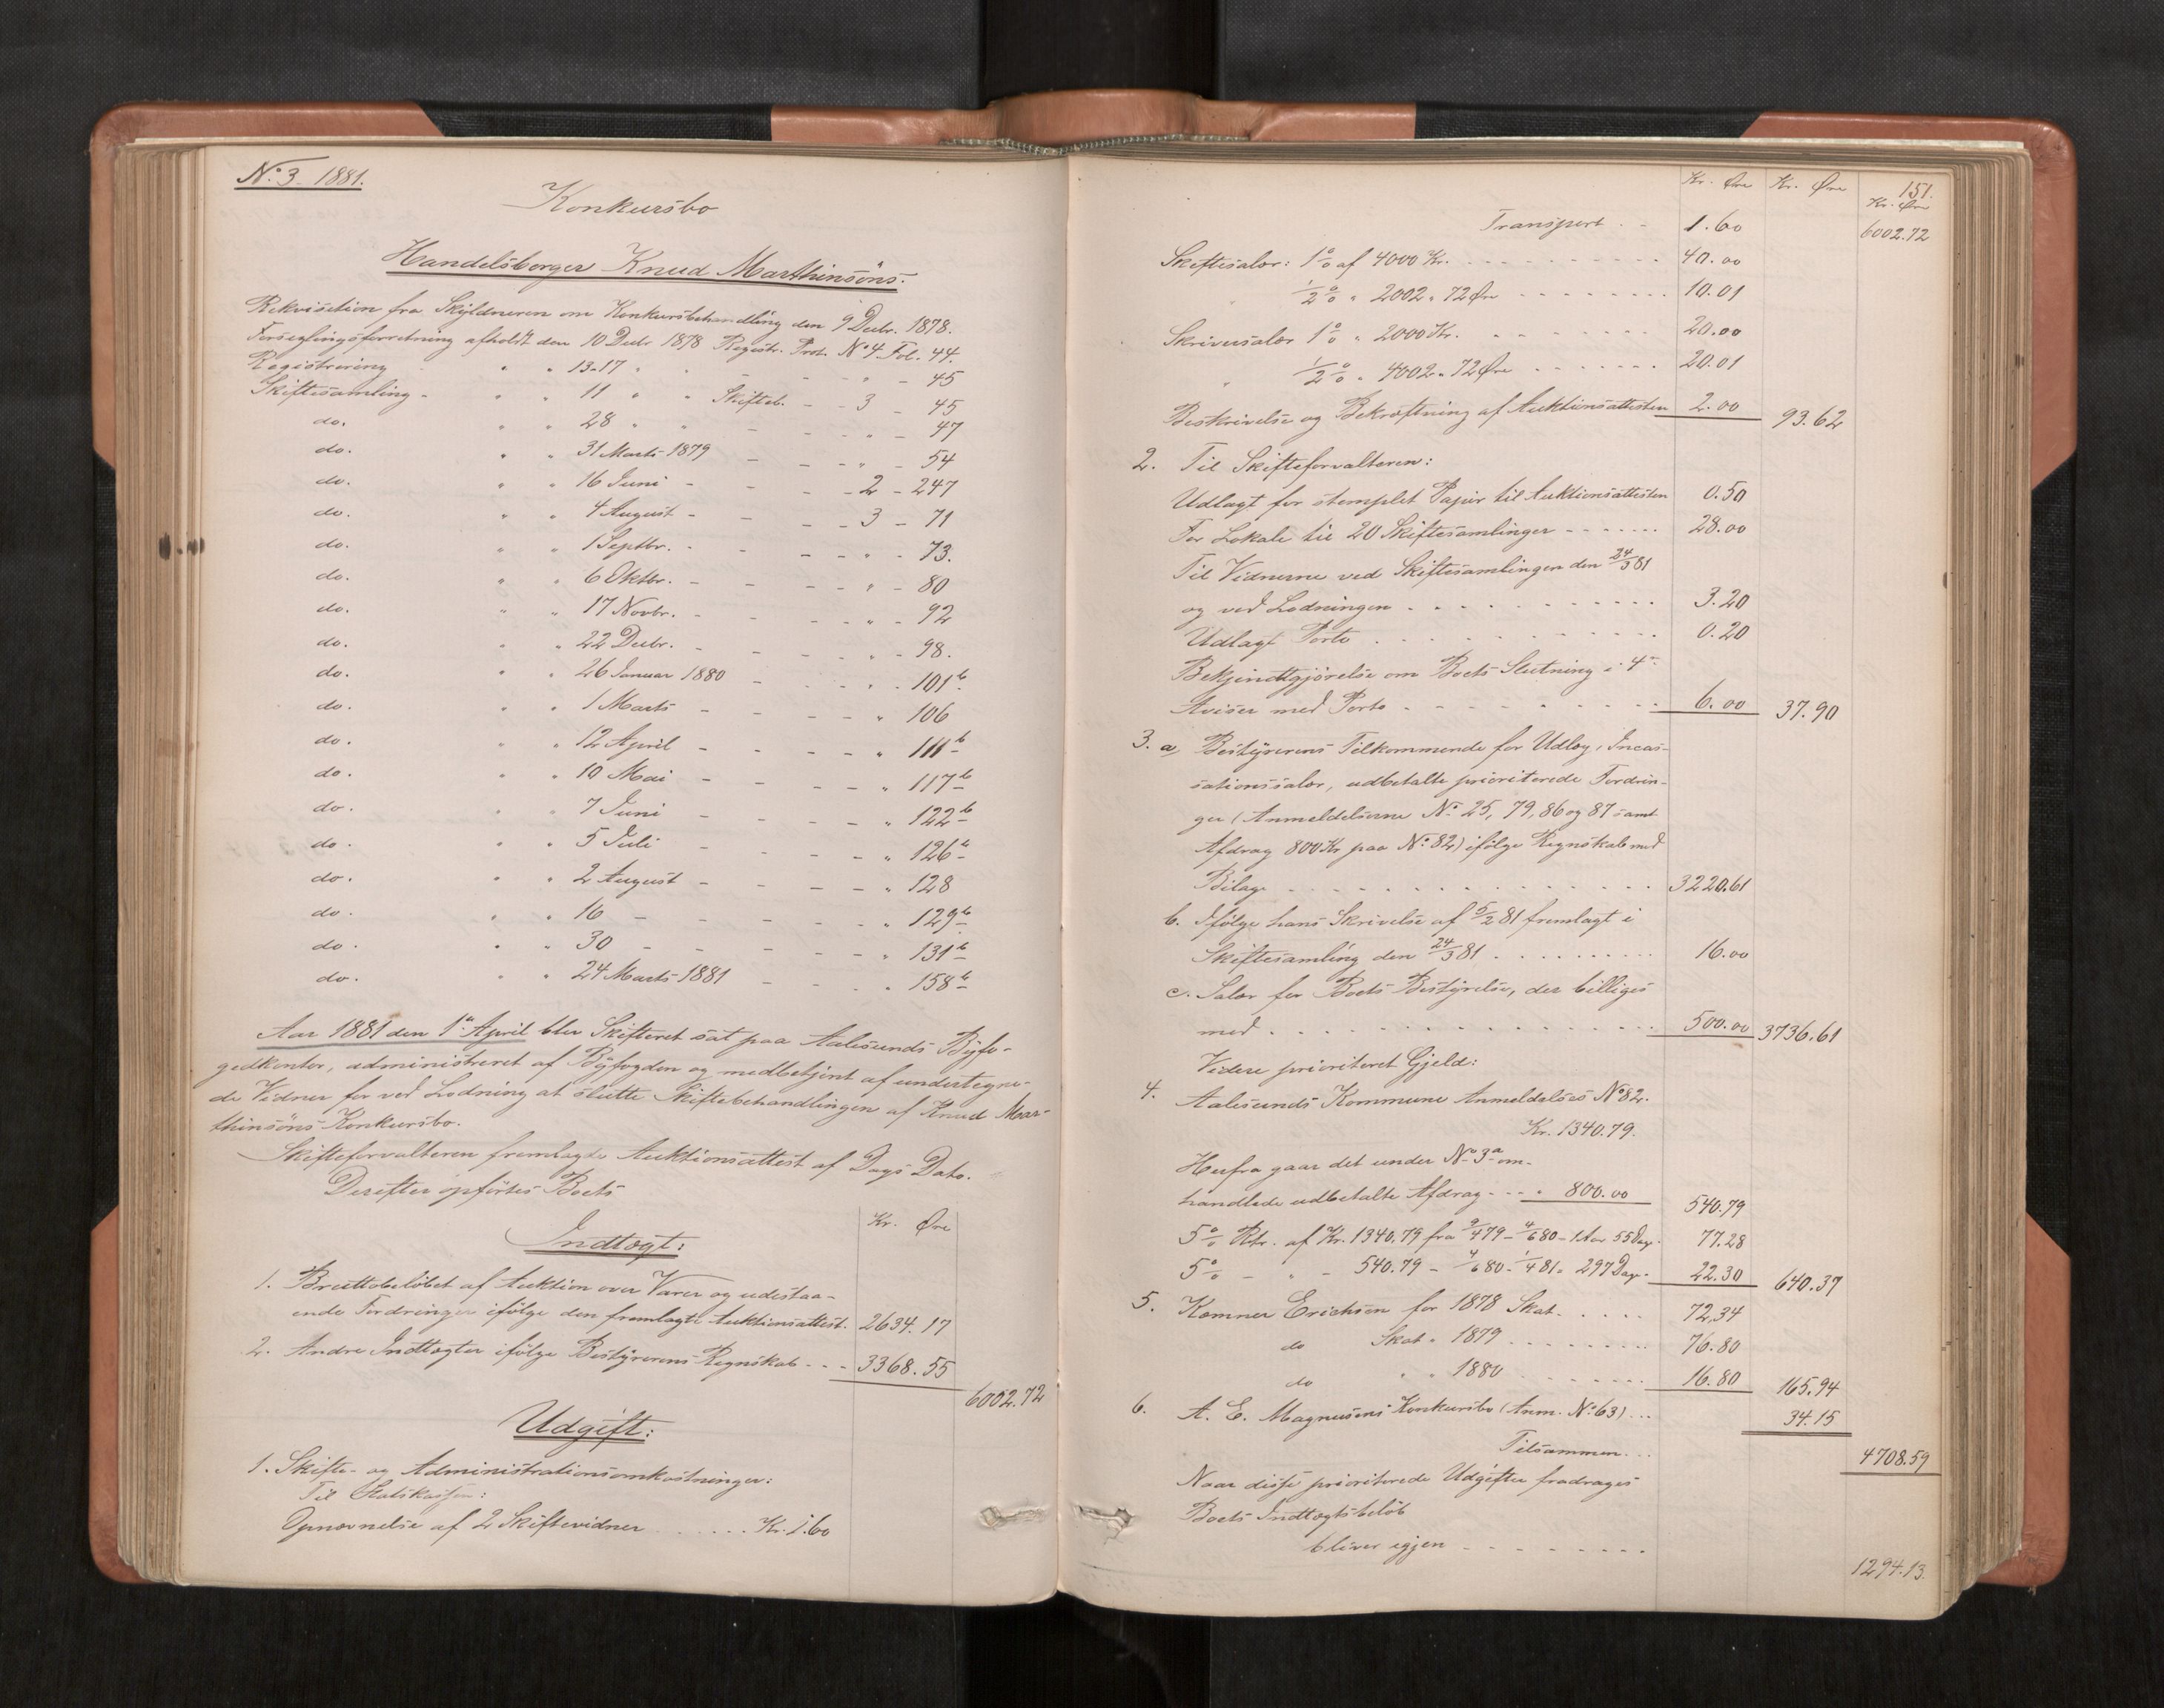 No. 3 1881.
Konkursbo
Handelsborger Knud Marthinsöns.
Rekvisition fra Skyldneren om Konkursbehandling den 9 Decbr. 1878.
Forseglingsforretning afholdt den 10 Decbr 1878 Registr. Prot. No 4 Fol. 44.
Registrering " " 13-17 " - - " - 45
Skiftesamling - " " 11 " " Skifteb. - - 3 - 45
do. " " 28 " " - - - " - 47
do. " " 31 Marts 1879 - - - " - 54
do. " " 16 Juni - - - 2 - 247
do. " " 4 August - - - - 3 - 71
do. " " 1 Septbr. - - - - " - 73.
do. " " 6 Oktbr. - - - - " - 80
do. " " 17 Novbr. - - - - " - 92
do. " " 22 Decbr. - - - - " - 98.
do. " " 26 Januar 1880 - - - " - 101b
do. " " 1 Marts - - - - " 106
do. " " 12 April - - - - " 111b
do. " " 10 Mai - - - - " 117b
do. " " 7 Juni - - - - " 122b
do. " " 5 Juli - - - - " 126b
do. " " 2 August - - - - " 128
do. " " 16 - - - - " 129b
do. " " 30 - - - - - " 131b
do. " " 24 Marts 1881 - - - " 158b
Aar 1881 den 1ste April blev Skifteret sat paa Aalesunds Byfo-
gedkontor, administreret af Byfogden og medbetjent af undertegne-
de Vidner for ved Lodning at slutte Skiftebehandlingen af Knud Mar-
thinsöns Konkursbo.
Skifteforvalteren fremlagde Auktionsattest af Dags Dato.
Derefter opförtes Boets
Kr. Øre
Indtægt:
1. Bruttobelöbet af Auktion over Varer og udestaa-
ende Fordringer ifölge den fremlagte Auktionsattest. 2634.17
2. Andre Indtægter ifölge Bestyrerens Regnskab - - - 3368.55
6002.72
Udgift:
1. Skifte- og Administrationsomkostninger:
Til Statskassen:
Opnævnelse af 2 Skiftevidner . . . . . . Kr. 1.60
151.
Kr. Øre Kr. Øre Kr. Øre
Transport . - 1.60 6002.72
Skiftesalær: 1% af 4000 Kr. . . . . . . 40.00
" 1/2% " 2002 " 72 Øre - - - - - - 10.01
Skriversalær 1% " 2000 Kr. - - - - - 20.00
" 1/2% " 4002 " 72 Øre . . . . . . 20.01
Beskrivelse og Bekræftning af Auktionsattesten 2.00 93.62
2. Til Skifteforvalteren:
Udlagt for stemplet Papir til Auktionsattesten 0.50
For Lokale til 20 Skiftesamlinger - - - - - - 28.00
Til Vidnerne ved Skiftesamlingen den 24/3 81
og ved Lodningen . . . . . . . . 3.20
Udlagt Porto . . . . . . . . 0.20
Bekjendtgjörelse om Boets Slutning i 4re
Aviser med Porto . . . . . . . . 6.00 37.90
3. a, Bestyrerens Tilkommende for Udlæg, Incas-
sationssalær, udbetalte prioriterede Fordrin-
ger (Anmeldelserne No 25, 79, 86 og 87 samt
Afdrag 800 Kr paa No 82) ifölge Regnskab med
Bilage . . . . . . . . . . 3220.61
b. Ifölge hans Skrivelse af 5/2 81 fremlagt i
Skiftesamling den 24/3 81 . . . . . . . . 16.00
c. Salær for Boets Bestyrelse, der billiges
med . . . . . . . . . . 500.00 3736.61
Videre prioriteret Gjeld:
4. Aalesunds Kommune Anmeldelses No 82.
Kr. 1340.79.
Herfra gaar det under No 3a om-
handlede udbetalte Afdrag - - - " 800.00 540.79
5% Rtr. af Kr. 1340.79 fra 9/4 79 - 4/6 80 - 1 Aar 55 Dag. 77.28
5% - " - 540.79 - 4/6 80 - 1/4 81 - 297 Dag - 22.30 640.37
5. Kæmner Erichsen for 1878 Skat . . . . . 72.34
do Skat " 1879 . . . . . . . . 76.80
do " " 1880 . . . . . . . 16.80 165.94
6. A. E. Magnusens Konkursbo (Anm. No 63) . . . 34.15
Tilsammen . . . 4708.59
Naar disse prioriterede Udgifter fradrages
Boets Indtægtsbelöb
bliver igjen - - - - - - - - - 1294.13.